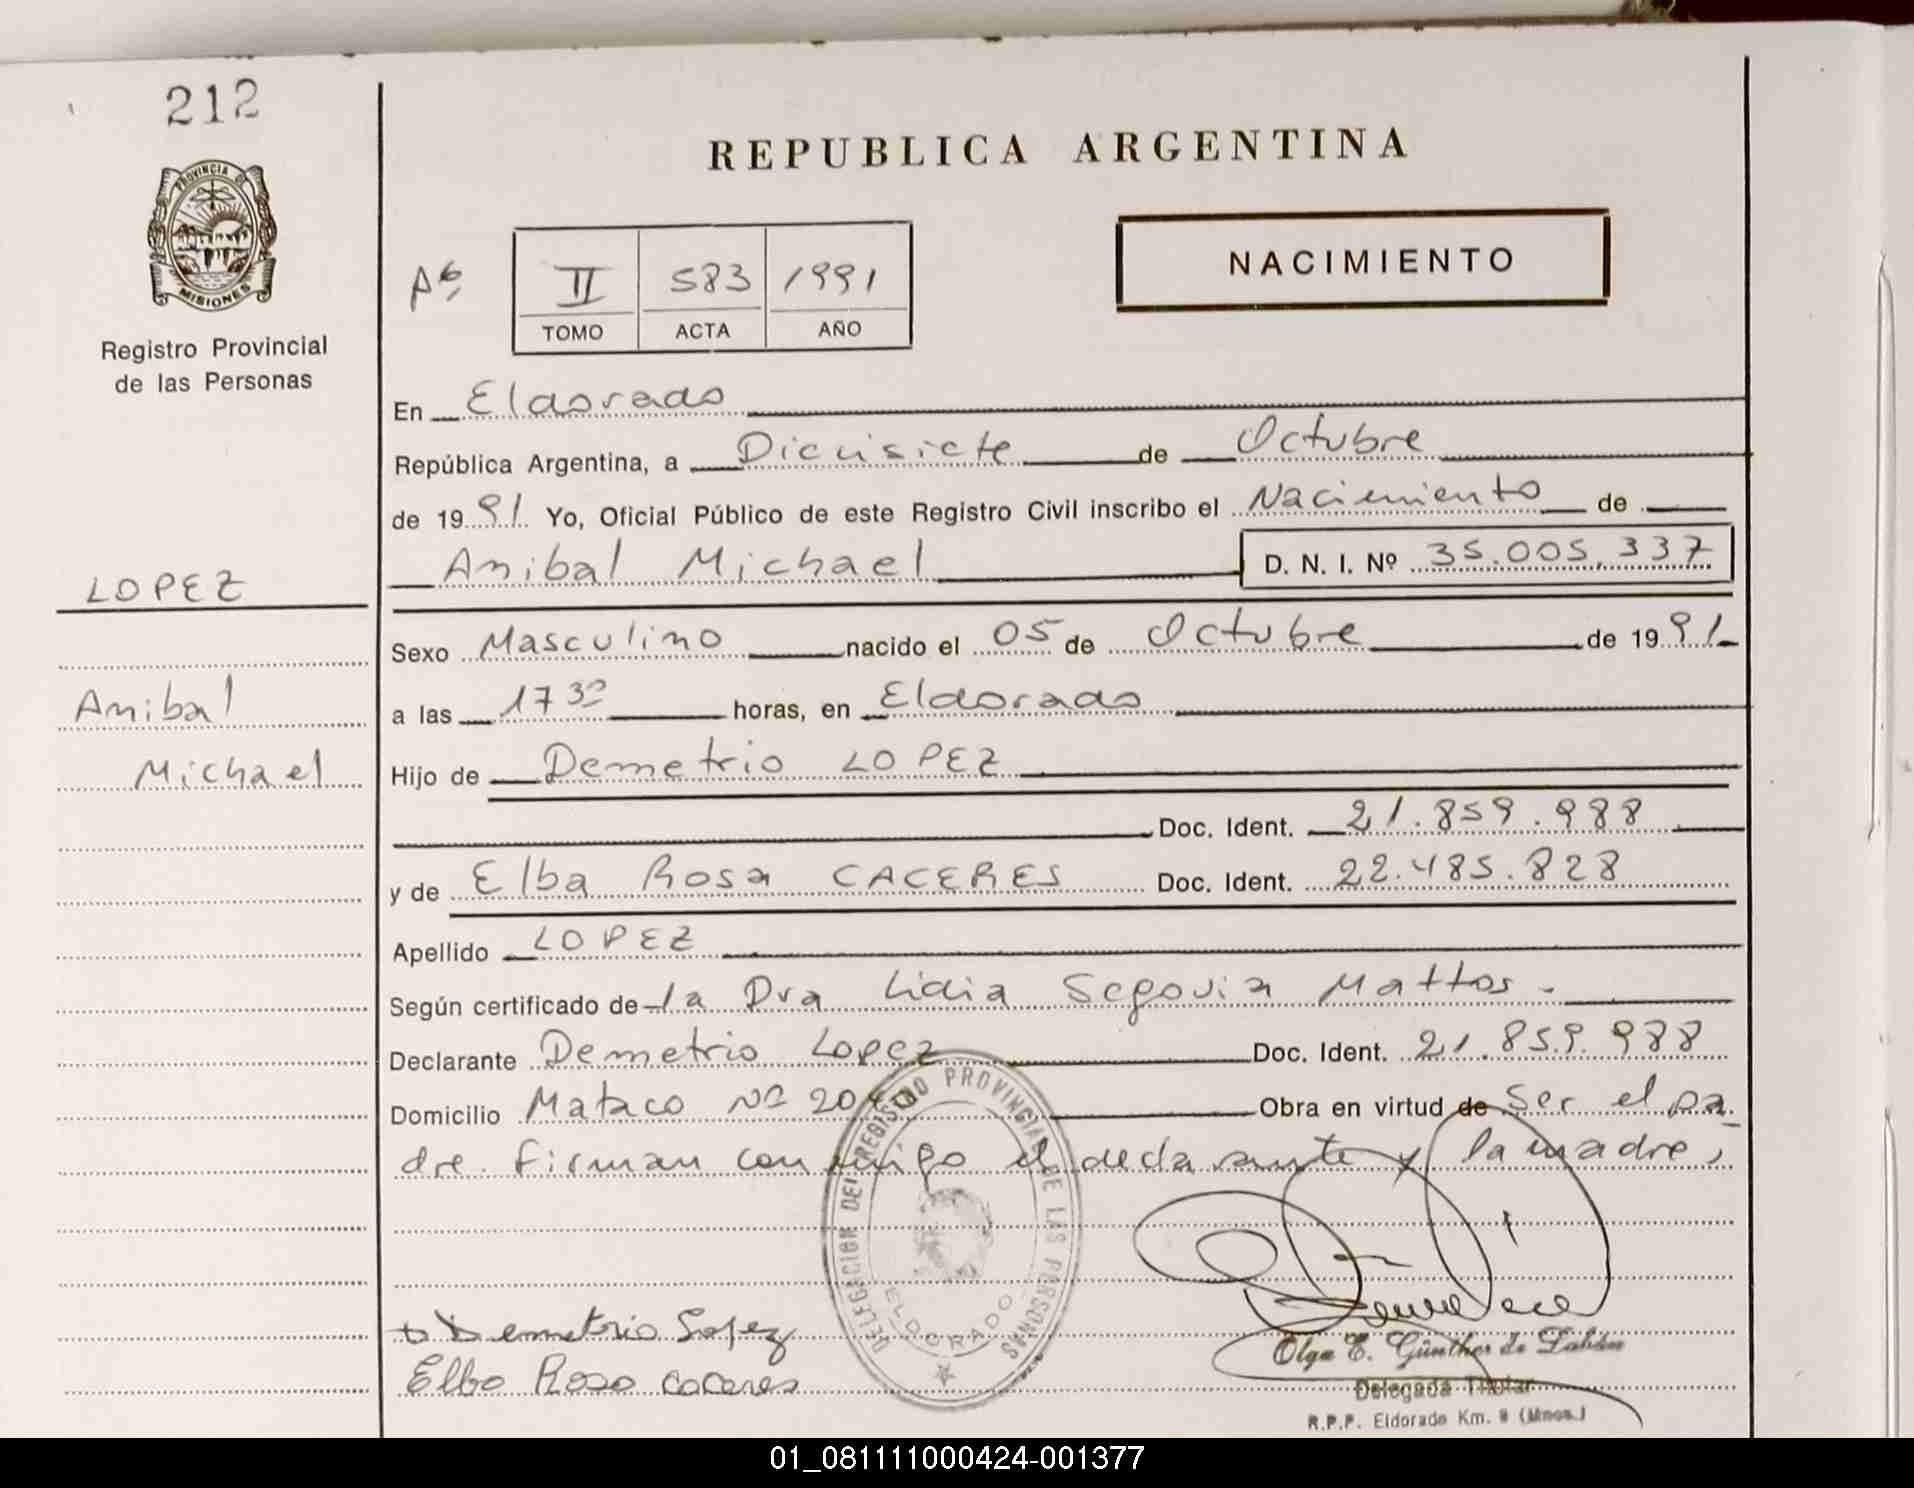 212
REPUBLICA ARGENTINA
PROVINCIA DE
MISIONES
Registro Provincial
de las Personas
II 583 1991
TOMO ACTA AÑO
NACIMIENTO
En Eldorado
República Argentina, a Diecisiete de Octubre
de 1991 Yo, Oficial Público de este Registro Civil inscribo el Nacimiento de
Anibal Michael D. N. I. Nº 35.005.337
LOPEZ
Anibal
Michael
Sexo Masculino nacido el 05 de Octubre de 1991
a las 17 30 horas, en Eldorado
Hijo de Demetrio LOPEZ
Doc. Ident. 21.859.988
y de Elba Rosa CACERES Doc. Ident. 22.485.828
Apellido LOPEZ
Según certificado de la Dra Lidia Segovia Mattos.
Declarante Demetrio Lopez Doc. Ident. 21.859.988
Domicilio Mataco Nº Obra en virtud de ser el pa-
dre. firman conmigo el declarante y la madre,
DELEGACION DEL REGISTRO PROVINCIAL DE LAS PERSONAS
ELDORADO
Demetrio Lopez
Elba Rosa Caceres
Olga E. Günther de
Delegada Titular
R.P.P. Eldorado Km. 9 (Mnes.)
01_081111000424-001377